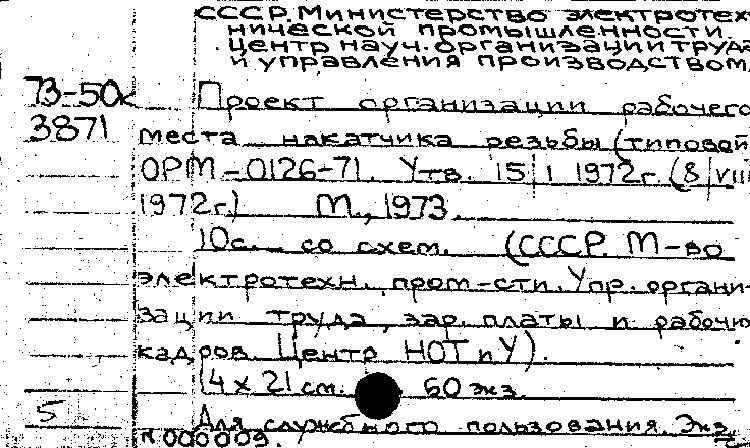 СССР. Министерство электротех
нической промышленности.
Центр науч. организации труда
и управления производством.
73-50к Проект организации рабочего
3871 места накатчика резьбы (типовой
ОРМ-0126-71. Утв. 15/I 1972г. (8/VIII
1972г.) М., 1973.
10с. со схем. (СССР. М-во
электротехн. пром-сти. Упр. органи-
зации труда, зар. платы и рабочих
кадров. Центр НОТ и У).
14 х 21 см. 60 экз.
5 Для служебного пользования. Экз.
N 000009.